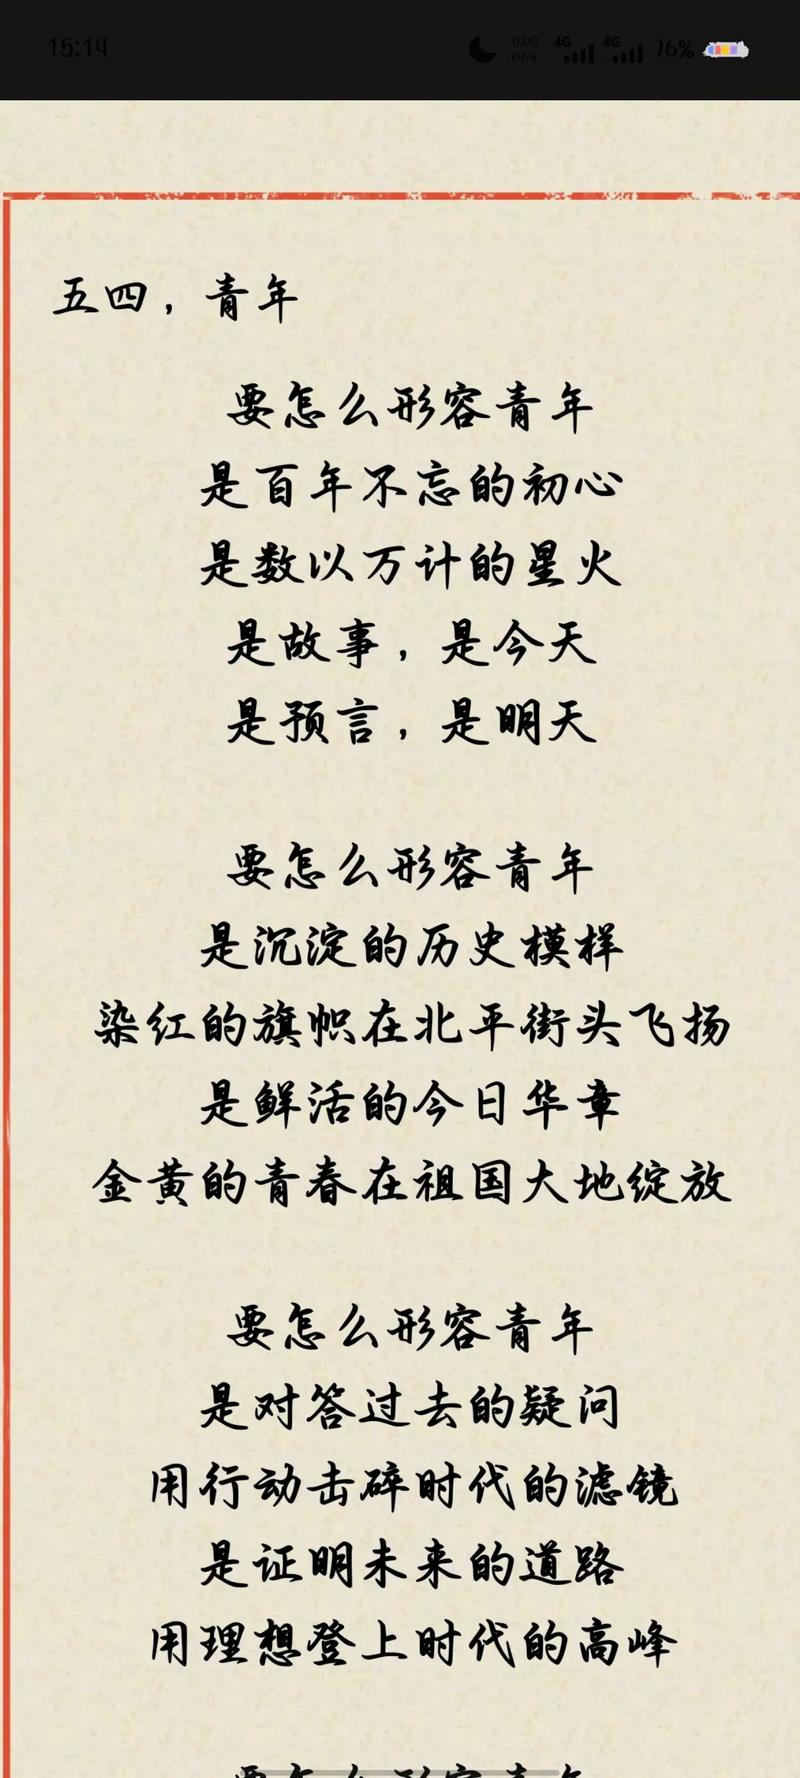 15:14
0.00
KB/s
4G
4G
76%
五四，青年
要怎么形容青年
是百年不忘的初心
是数以万计的星火
是故事，是今天
是预言，是明天
要怎么形容青年
是沉淀的历史模样
染红的旗帜在北平街头飞扬
是鲜活的今日华章
金黄的青春在祖国大地绽放
要怎么形容青年
是对答过去的疑问
用行动击碎时代的滤镜
是证明未来的道路
用理想登上时代的高峰
要怎么形容青年